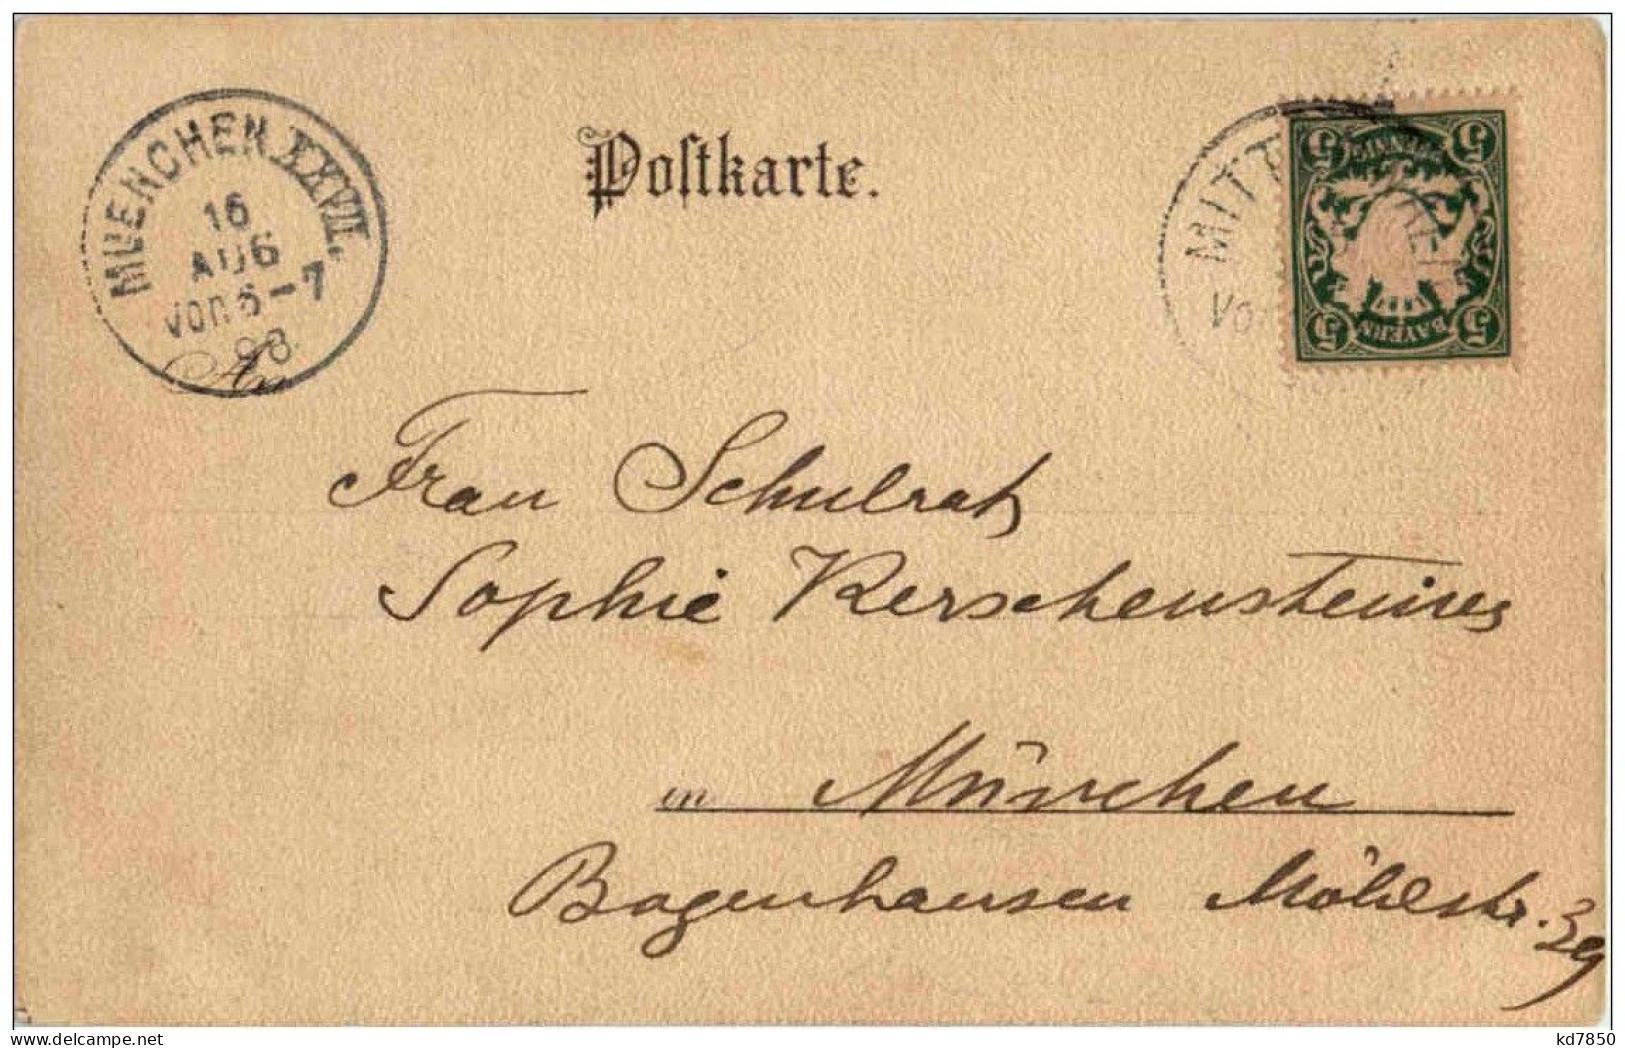 MUENCHEN XXVII.
16
AUG
VOR 6-7
98
Postkarte.
MITT
Vo
5 5
PFENNIG
BAYERN
5 5
An
Frau Schulrath
Sophie Kerschensteiner
in München
Bogenhausen Möhlstr. 39
kd7850